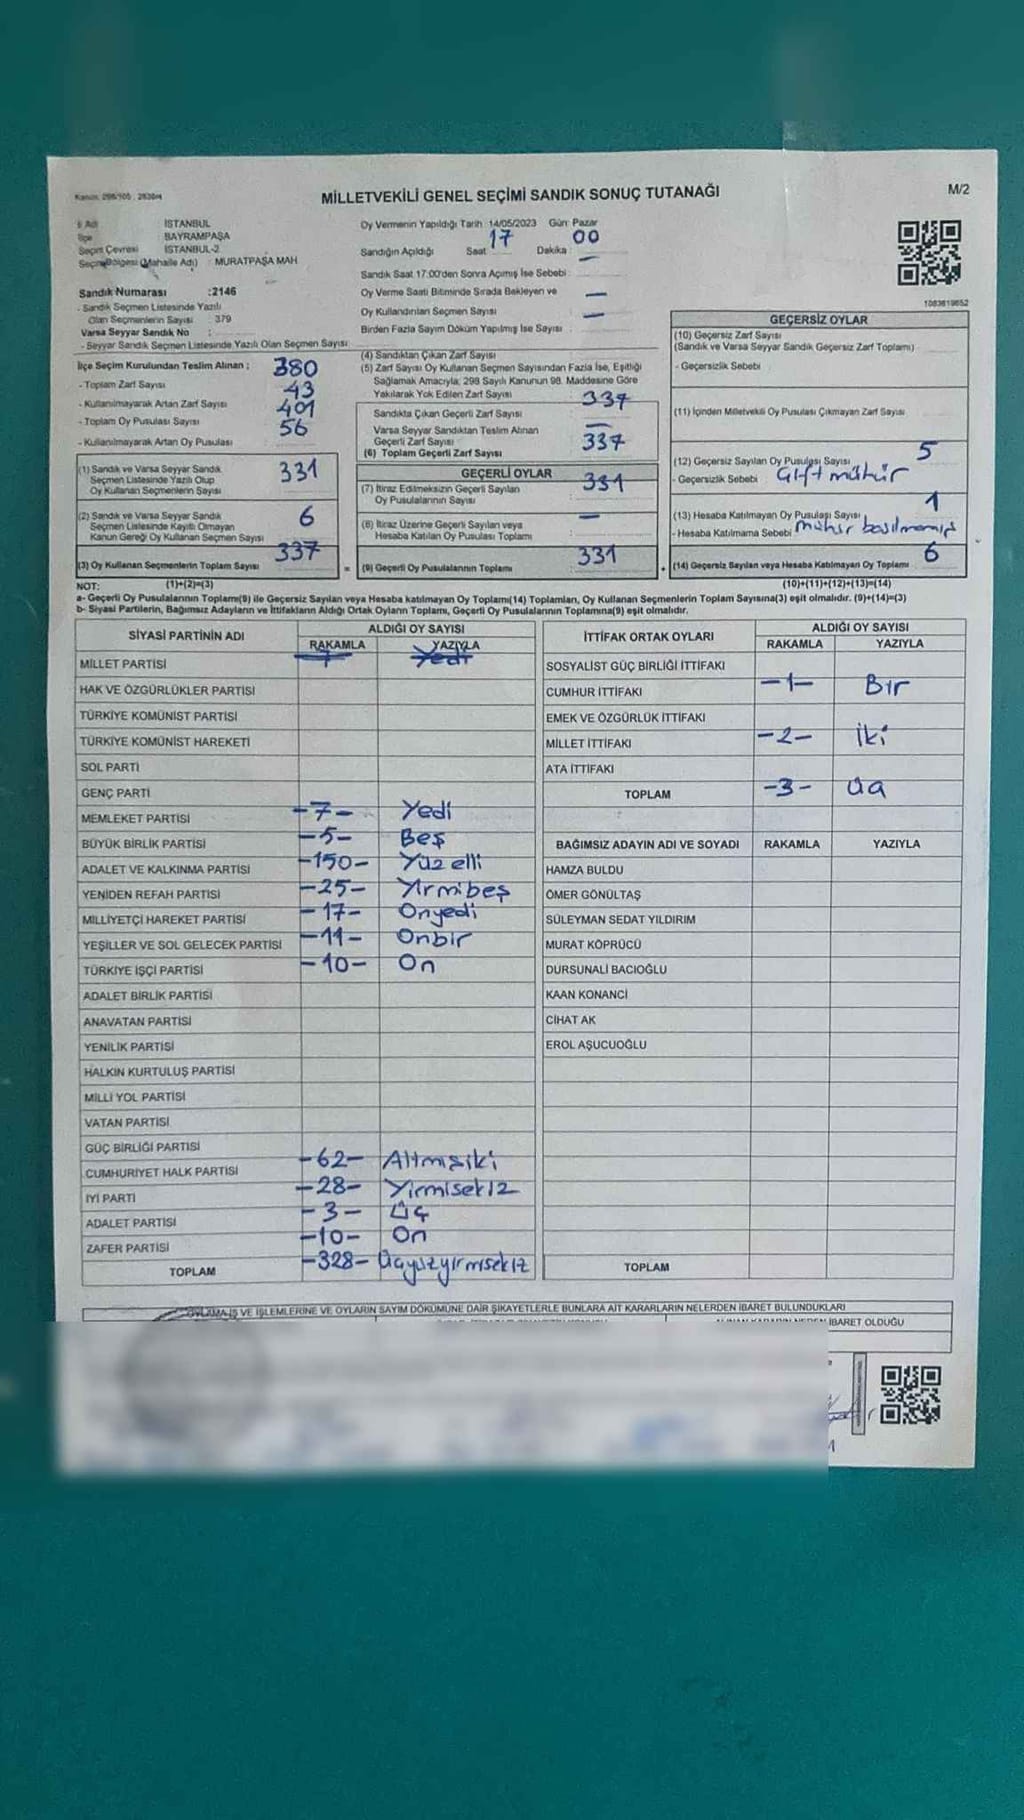 Kanun: 298/105 : 2839/4
MİLLETVEKİLİ GENEL SEÇİMİ SANDIK SONUÇ TUTANAĞI
M/2
İl Adı : İSTANBUL
İlçe : BAYRAMPAŞA
Seçim Çevresi : İSTANBUL-2
Seçim Bölgesi (Mahalle Adı) : MURATPAŞA MAH
Sandık Numarası :2146
- Sandık Seçmen Listesinde Yazılı
Olan Seçmenlerin Sayısı : 379
Varsa Seyyar Sandık No :
- Seyyar Sandık Seçmen Listesinde Yazılı Olan Seçmen Sayısı:
Oy Vermenin Yapıldığı Tarih 14/05/2023 Gün: Pazar
Sandığın Açıldığı Saat : 17 Dakika : 00
Sandık Saat 17:00'den Sonra Açımış İse Sebebi : —
Oy Verme Saati Bitiminde Sırada Bekleyen ve
Oy Kullandırılan Seçmen Sayısı : —
Birden Fazla Sayım Döküm Yapılmış İse Sayısı : —
1083619652
İlçe Seçim Kurulundan Teslim Alınan ;
- Toplam Zarf Sayısı : 380
- Kullanılmayarak Artan Zarf Sayısı : 43
- Toplam Oy Pusulası Sayısı : 401
- Kullanılmayarak Artan Oy Pusulası : 56
(1) Sandık ve Varsa Seyyar Sandık
Seçmen Listesinde Yazılı Olup
Oy Kullanan Seçmenlerin Sayısı : 331
(2) Sandık ve Varsa Seyyar Sandık
Seçmen Listesinde Kayıtlı Olmayan
Kanun Gereği Oy Kullanan Seçmen Sayısı : 6
(3) Oy Kullanan Seçmenlerin Toplam Sayısı : 337
(4) Sandıktan Çıkan Zarf Sayısı
(5) Zarf Sayısı Oy Kullanan Seçmen Sayısından Fazla İse, Eşitliği
Sağlamak Amacıyla; 298 Sayılı Kanunun 98. Maddesine Göre
Yakılarak Yok Edilen Zarf Sayısı
Sandıkta Çıkan Geçerli Zarf Sayısı : 337
Varsa Seyyar Sandıktan Teslim Alınan
Geçerli Zarf Sayısı : —
(6) Toplam Geçerli Zarf Sayısı : 337
GEÇERLİ OYLAR
(7) İtiraz Edilmeksizin Geçerli Sayılan
Oy Pusulalarının Sayısı : 331
(8) İtiraz Üzerine Geçerli Sayılan veya
Hesaba Katılan Oy Pusulası Toplamı : —
(9) Geçerli Oy Pusulalarının Toplamı : 331
GEÇERSİZ OYLAR
(10) Geçersiz Zarf Sayısı
(Sandık ve Varsa Seyyar Sandık Geçersiz Zarf Toplamı)
- Geçersizlik Sebebi :
(11) İçinden Milletvekili Oy Pusulası Çıkmayan Zarf Sayısı
(12) Geçersiz Sayılan Oy Pusulası Sayısı : 5
- Geçersizlik Sebebi : Çift mühür
(13) Hesaba Katılmayan Oy Pusulası Sayısı : 1
- Hesaba Katılmama Sebebi : mühür basılmamış
(14) Geçersiz Sayılan veya Hesaba Katılmayan Oy Toplamı : 6
NOT: (1)+(2)=(3) (10)+(11)+(12)+(13)=(14)
a- Geçerli Oy Pusulasının Toplamı(9) ile Geçersiz Sayılan veya Hesaba katılmayan Oy Toplamı(14) Toplamları, Oy Kullanan Seçmenlerin Toplam Sayısına(3) eşit olmalıdır. (9)+(14)=(3)
b- Siyasi Partilerin, Bağımsız Adayların ve İttifakların Aldığı Ortak Oyların Toplamı, Geçerli Oy Pusulalarının Toplamına(9) eşit olmalıdır.
SİYASİ PARTİNİN ADI ALDIĞI OY SAYISI
RAKAMLA YAZIYLA
MİLLET PARTİSİ 7 Yedi
HAK VE ÖZGÜRLÜKLER PARTİSİ
TÜRKİYE KOMÜNİST PARTİSİ
TÜRKİYE KOMÜNİST HAREKETİ
SOL PARTİ
GENÇ PARTİ
MEMLEKET PARTİSİ -7- Yedi
BÜYÜK BİRLİK PARTİSİ -5- Beş
ADALET VE KALKINMA PARTİSİ -150- Yüz elli
YENİDEN REFAH PARTİSİ -25- Yirmibeş
MİLLİYETÇİ HAREKET PARTİSİ -17- Onyedi
YEŞİLLER VE SOL GELECEK PARTİSİ -11- Onbir
TÜRKİYE İŞÇİ PARTİSİ -10- On
ADALET BİRLİK PARTİSİ
ANAVATAN PARTİSİ
YENİLİK PARTİSİ
HALKIN KURTULUŞ PARTİSİ
MİLLİ YOL PARTİSİ
VATAN PARTİSİ
GÜÇ BİRLİĞİ PARTİSİ
CUMHURİYET HALK PARTİSİ -62- Altmışiki
İYİ PARTİ -28- Yirmisekiz
ADALET PARTİSİ -3- Üç
ZAFER PARTİSİ -10- On
TOPLAM -328- Üçyüzyirmisekiz
İTTİFAK ORTAK OYLARI ALDIĞI OY SAYISI
RAKAMLA YAZIYLA
SOSYALİST GÜÇ BİRLİĞİ İTTİFAKI
CUMHUR İTTİFAKI -1- Bir
EMEK VE ÖZGÜRLÜK İTTİFAKI
MİLLET İTTİFAKI -2- İki
ATA İTTİFAKI
TOPLAM -3- Üç
BAĞIMSIZ ADAYIN ADI VE SOYADI RAKAMLA YAZIYLA
HAMZA BULDU
ÖMER GÖNÜLTAŞ
SÜLEYMAN SEDAT YILDIRIM
MURAT KÖPRÜCÜ
DURSUNALİ BACIOĞLU
KAAN KONANCİ
CİHAT AK
EROL AŞUCUOĞLU
TOPLAM
OYLAMA İŞ VE İŞLEMLERİNE VE OYLARIN SAYIM DÖKÜMÜNE DAİR ŞİKAYETLERLE BUNLARA AİT KARARLARIN NELERDEN İBARET BULUNDUKLARI
İBARET OLDUĞU